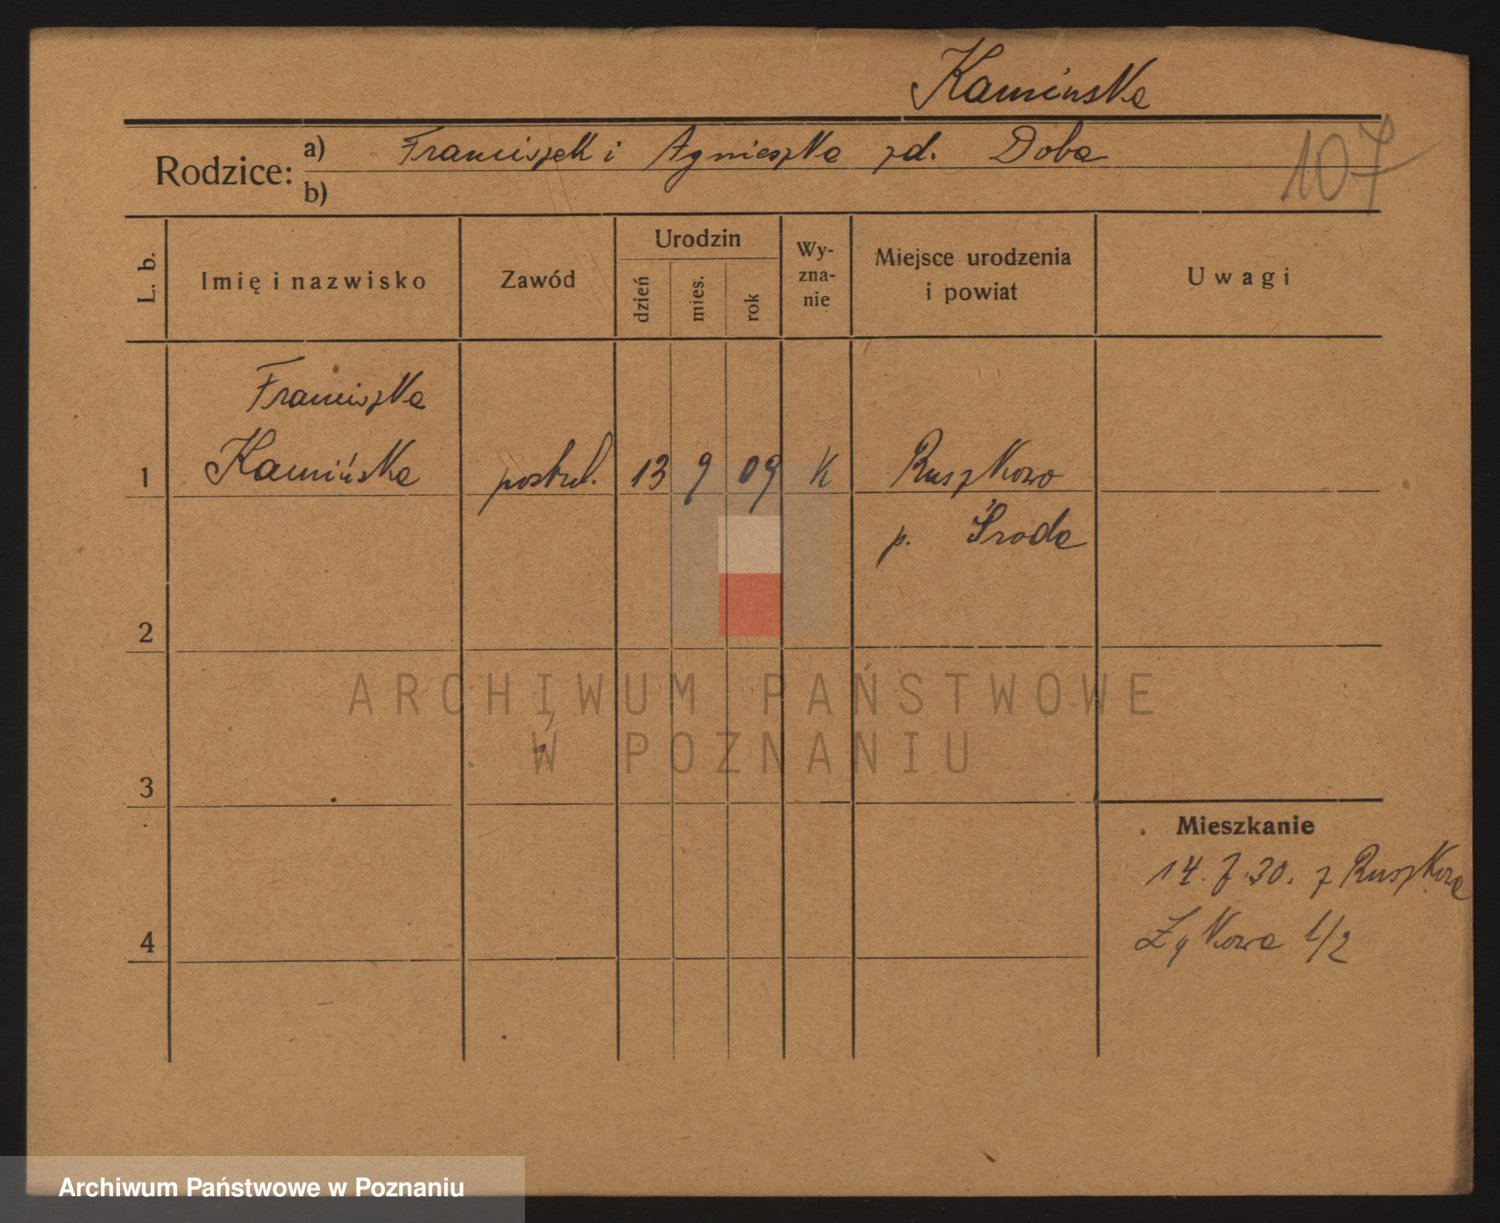 Kamińska
Rodzice: a) Franciszek i Agnieszka zd. Doba
b)
107
L. b.
Imię i nazwisko
Zawód
Urodzin
dzień
mies.
rok
Wy-
zna-
nie
Miejsce urodzenia
i powiat
Uwagi
Franciszka
1 Kamińska postul. 13 9 09 K Ruszkowo
p. Środa
2
3
4
Mieszkanie
14. 7. 30. z Ruszkowa
Łąkowa 1/2
ARCHIWUM PAŃSTWOWE
W POZNANIU
Archiwum Państwowe w Poznaniu